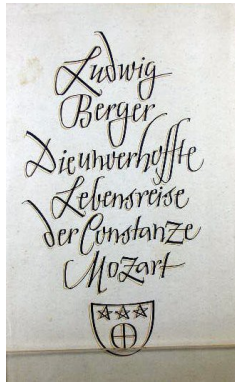 Ludwig
Berger
Die unverhoffte
Lebensreise
der Constanze
Mozart